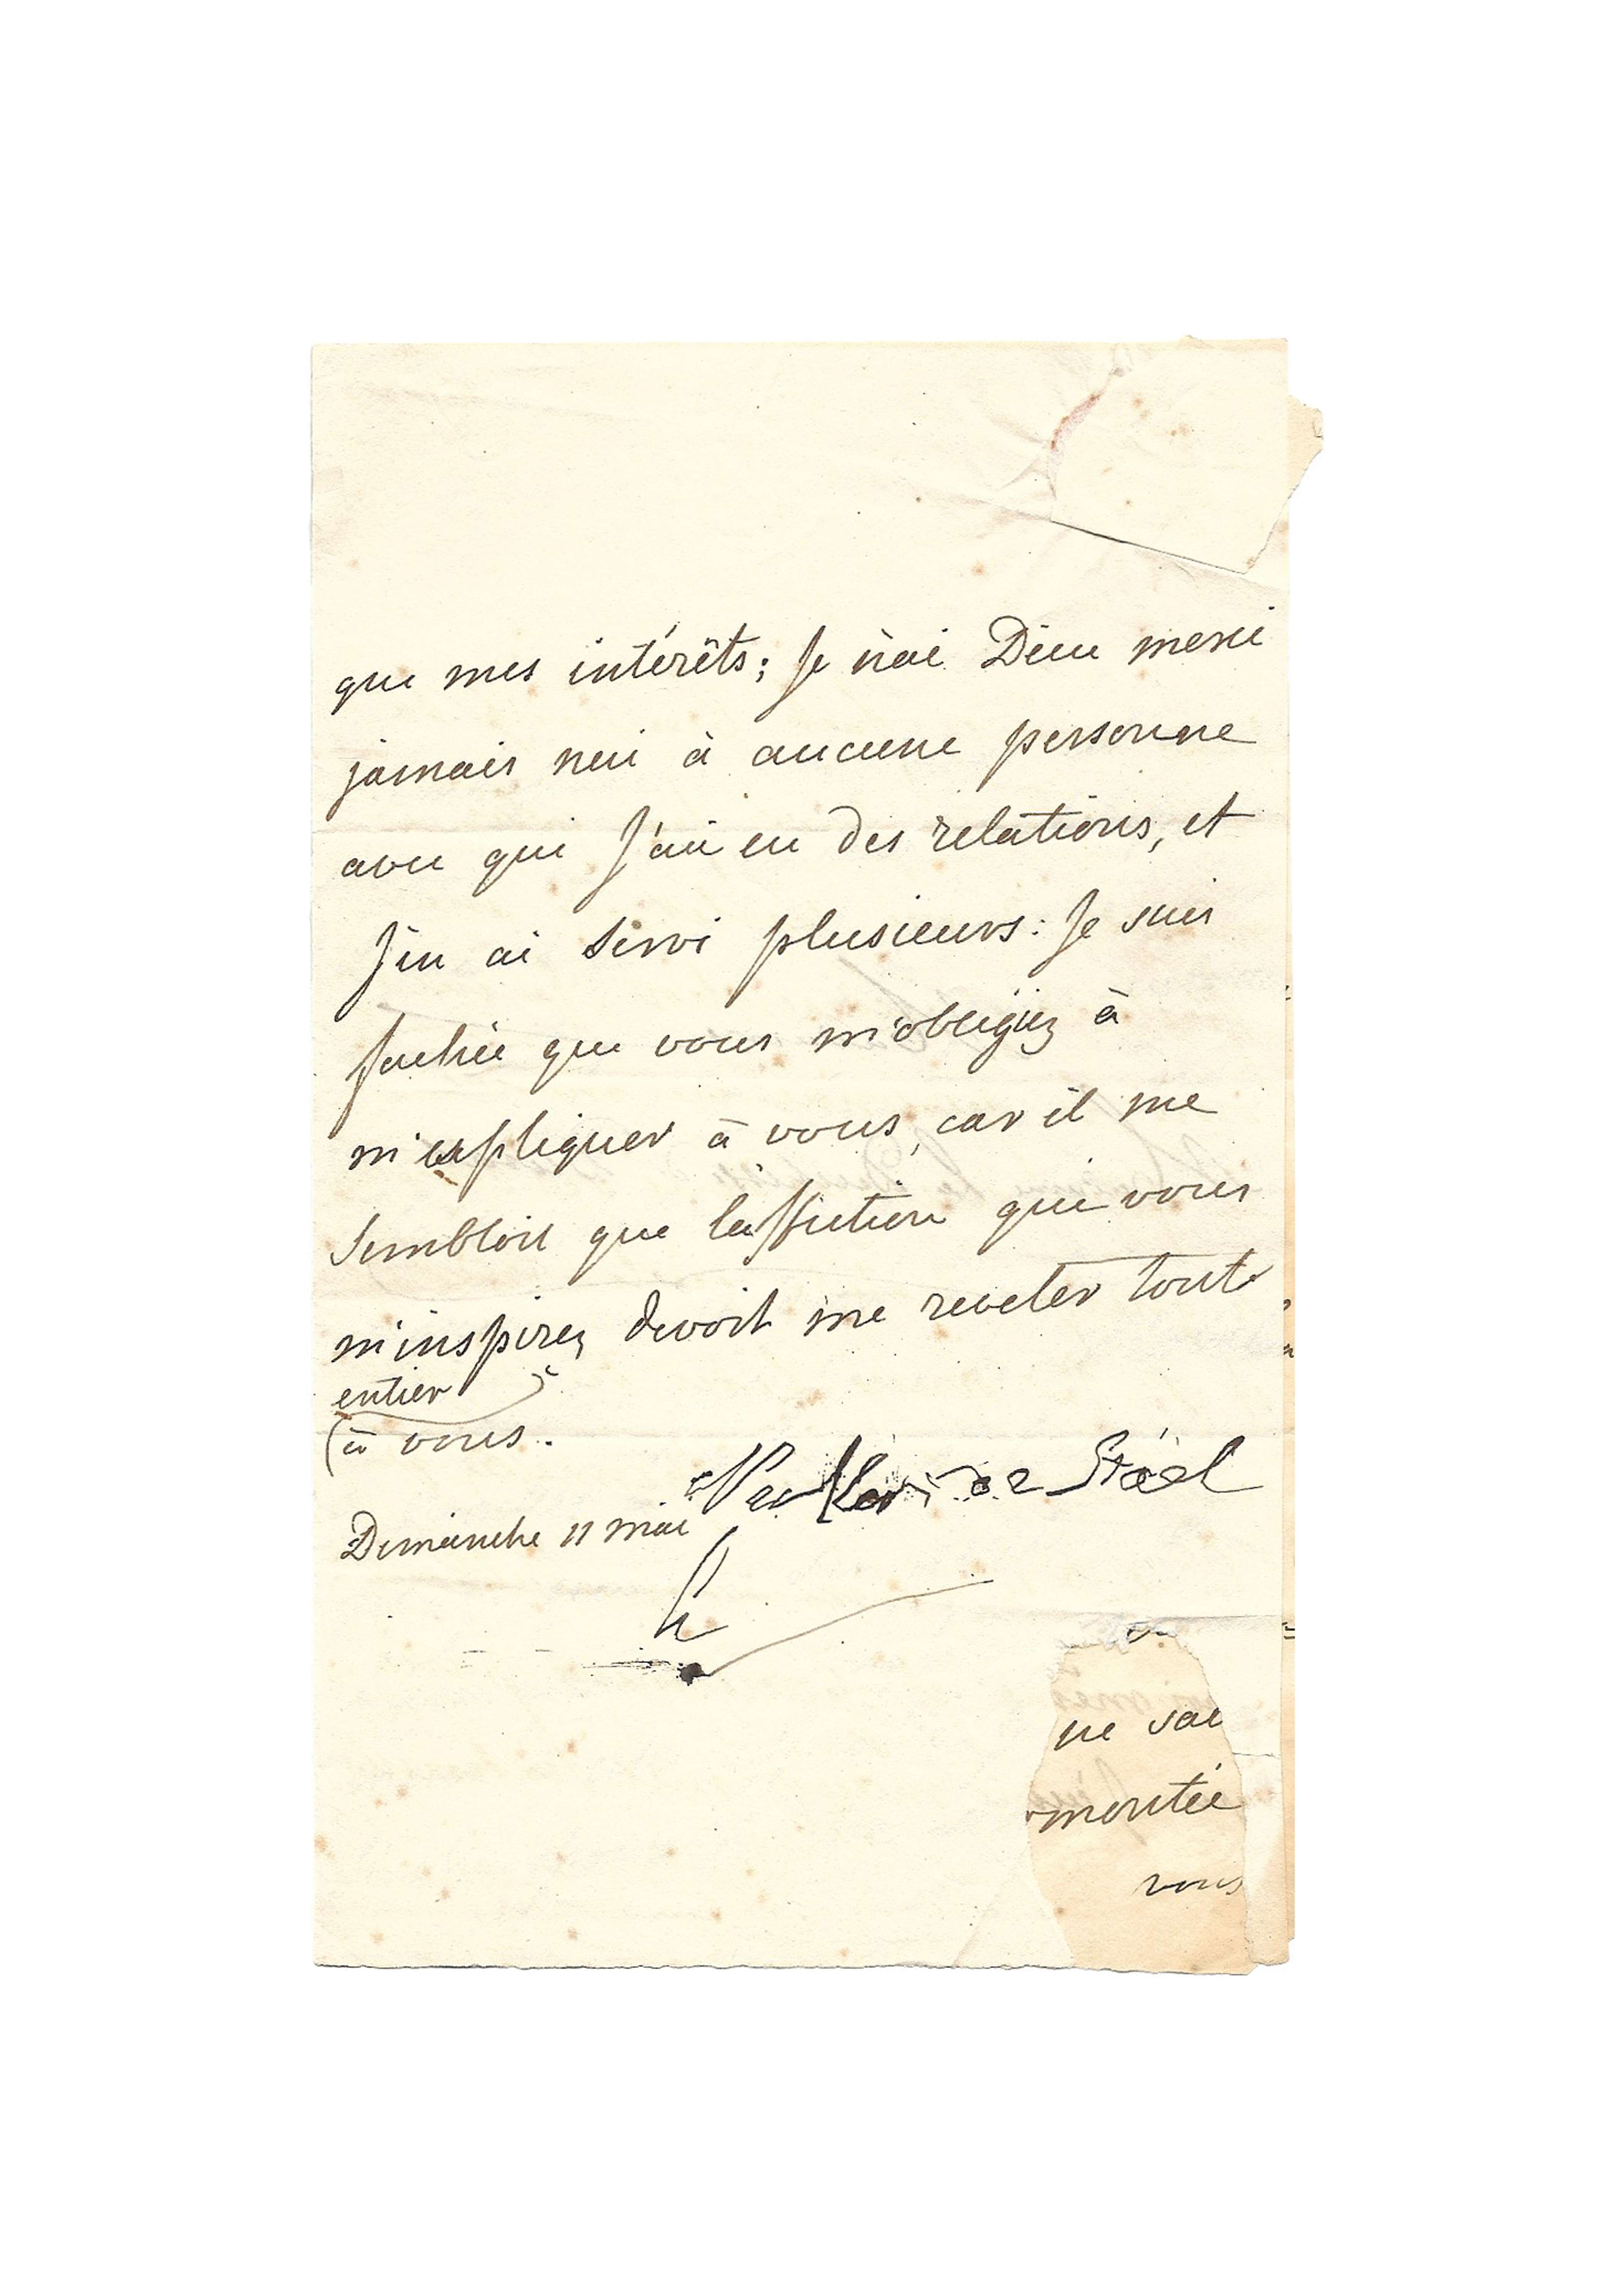 que mes intérêts; Je n'ai Dieu merci
jamais nui à aucune personne
avec qui J'ai eu des relations, et
J'en ai servi plusieurs: Je suis
fachée que vous m'obligiez à
m'expliquer à vous, car il me
sembloit que l'affection que vous
m'inspirez devoit me reveler tout
entier
à vous.
Necker de Stael
Dimanche 11 mai
ne sai
montée
vous